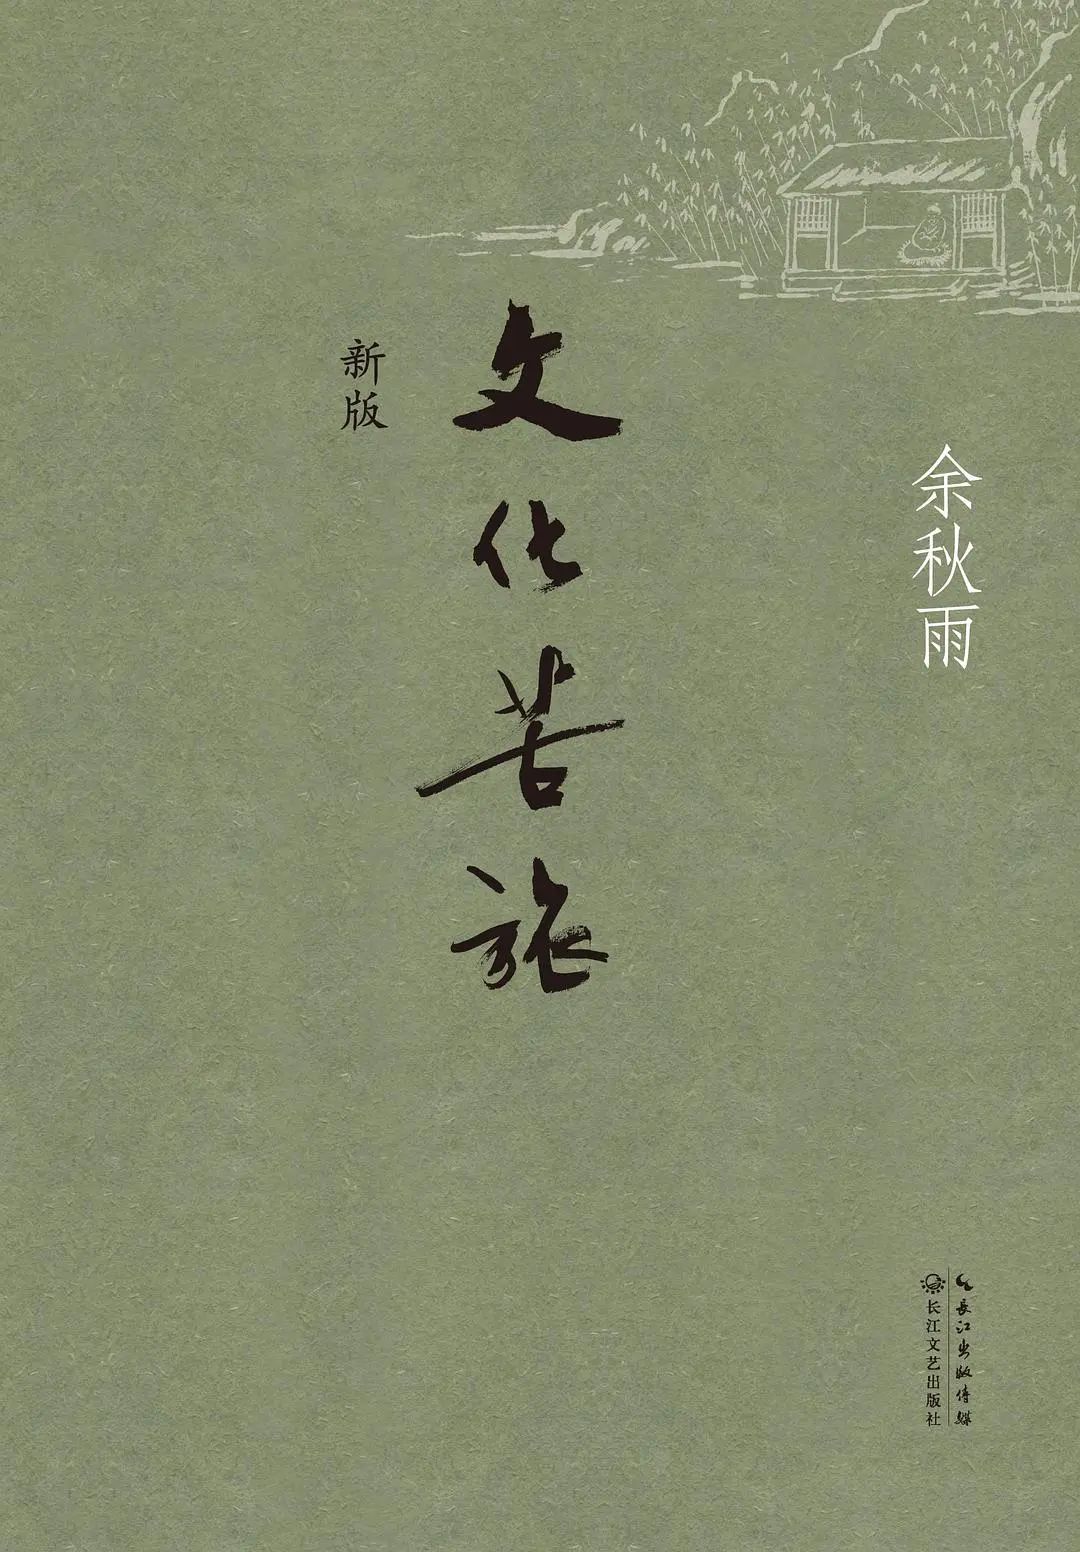 余秋雨
文化苦旅
新版
長江出版傳媒
长江文艺出版社